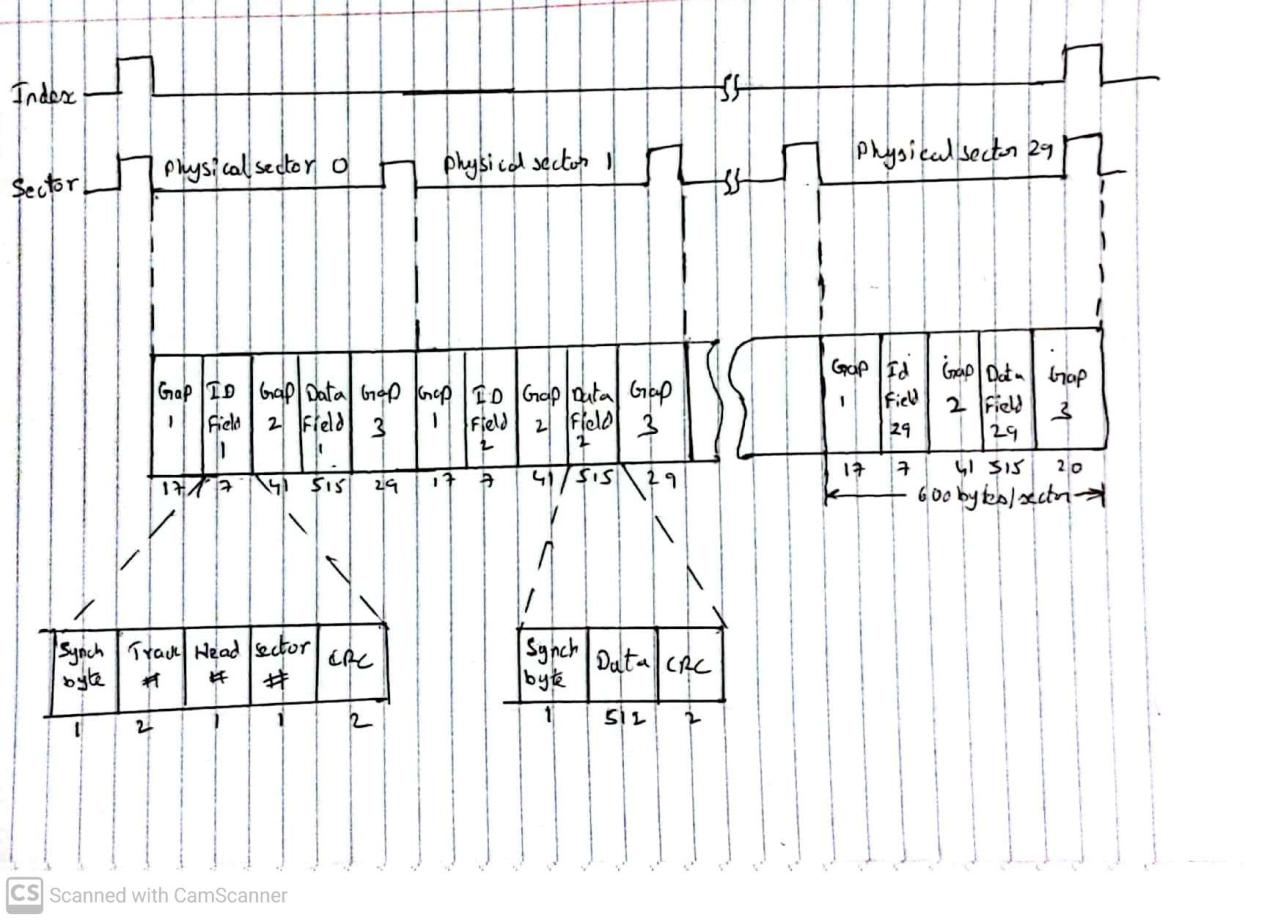 Index
Sector
Physical sector 0
Physical sector 1
Physical sector 29
Gap 1
ID Field 1
Gap 2
Data Field 1
Gap 3
Gap 1
ID Field 2
Gap 2
Data Field 2
Gap 3
Gap 1
Id Field 29
Gap 2
Data Field 29
Gap 3
17 7 41 515 29 17 7 41 515 29
17 7 41 515 20
600 bytes/sector
Synch byte
Track #
Head #
Sector #
CRC
1 2 1 1 2
Synch byte
Data
CRC
1 512 2
CS Scanned with CamScanner